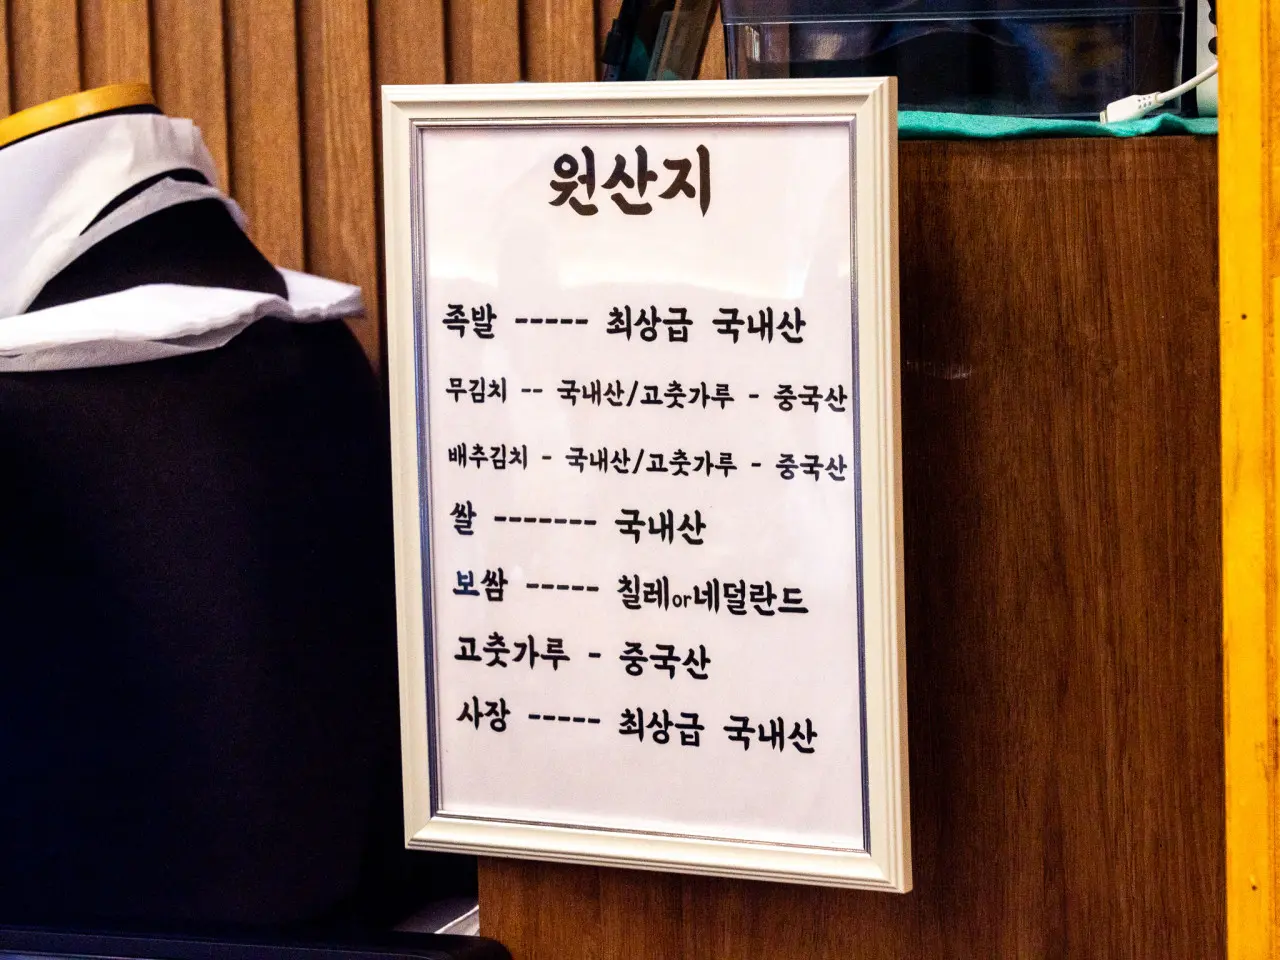 원산지
족발 ----- 최상급 국내산
무김치 -- 국내산/고춧가루 - 중국산
배추김치 - 국내산/고춧가루 - 중국산
쌀 ------- 국내산
보쌈 ----- 칠레or네덜란드
고춧가루 - 중국산
사장 ----- 최상급 국내산